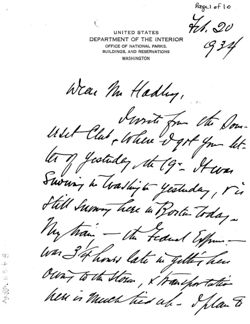 Page 1 of 10
Feb. 20
1934
UNITED STATES
DEPARTMENT OF THE INTERIOR
OFFICE OF NATIONAL PARKS,
BUILDINGS, AND RESERVATIONS
WASHINGTON
Dear Mr Hadley,
I write from the Som-
erset Club, where I got your let-
ter of yesterday the 19th. It was
snowing in Washington yesterday, & is
still snowing here in Boston today.
My train — the Federal Express —
was 3 1/4 hours late in getting here
owing to the storm, & transportation
here is much tied up. I plan to